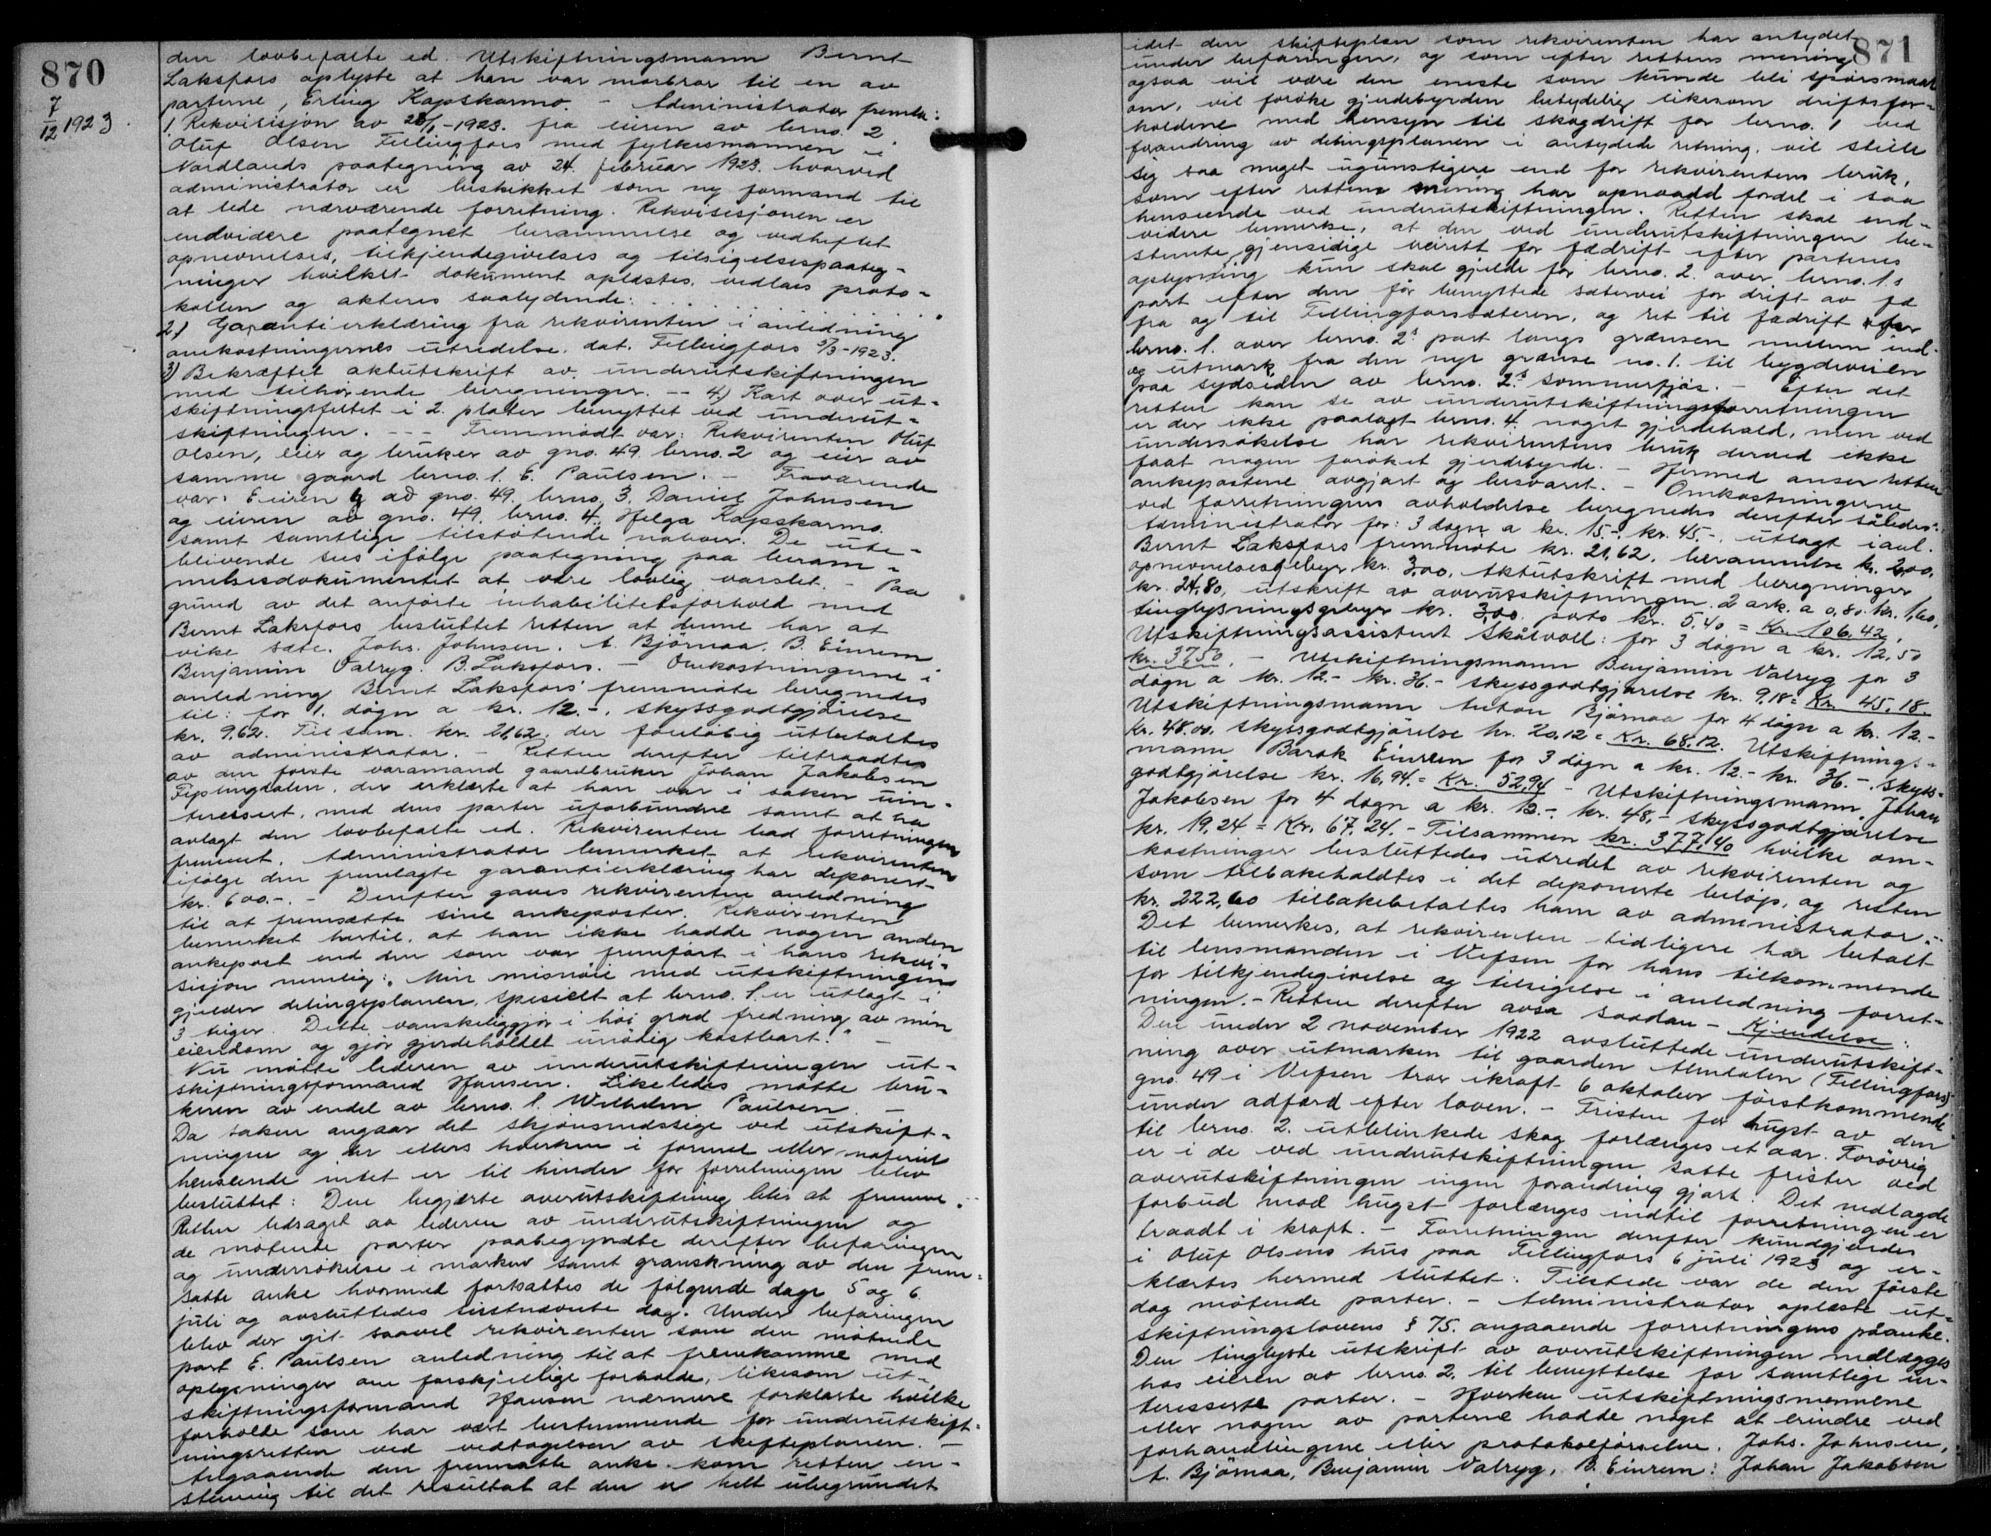 870
7/12 1923.
den lovbefalte ed. Utskiftningsmann Bernt
Laksfors oplyste at han var morbror til en av
parterne, Erling Kapskarmo. - Administrator fremla:
1. Rekvisisjon av 28/1-1923. fra eieren av brno. 2
Oluf Olsen Fellingfors med fylkesmannen i
Nordlands paategning av 24. februar 1923. hvorved
administrator er beskikket som ny formand til
at lede nærværende forretning. Rekvisisjonen er
endvidere paategnet berammelse og vedheftet
opnevnelses, tilkjendegivelses og tilsigelsespaateg-
ninger hvilket dokument oplæstes, vedlaes proto-
kollen og akteres saalydende: . . . . . . . . .
2.) Garantierklæring fra rekvirenten i anledning
omkostningernes utredelse. dat. Fellingfors 5/3-1923.
3) Bekræftet aktutskrift av underutskiftningen
med tilhørende beregninger. -- 4.) Kart over ut-
skiftningsfeltet i 2. plater benyttet ved underut-
skiftningen. --- Fremmødt var: Rekvirenten Oluf
Olsen, eier og bruker av gno. 49 brno. 2 og eier av
samme gaard brno. 1. E. Paulsen. - Fraværende
var: Eieren av gno. 49. brno. 3. Daniel Johnsen
og eieren av gno. 49. brno. 4. Helga Kapskarmo.
samt samtlige tilstøtende naboer. De ute-
blivende sees ifølge paategning paa beram-
melsesdokumentet at være lovlig varslet. - Paa
grund av det anførte inhabilitetsforhold med
Bernt Laksfors besluttet retten at denne har at
vike sæte. Johs. Johnsen. A. Bjørnaa. B. Einrem
Benjamin Valryg. B. Laksfors. - Omkostningerne i
anledning Bernt Laksfors' fremmøte beregnedes
til: for 1. døgn a kr. 12.-. skyssgodtgjørelse
kr. 9,62. Tilsam. kr. 21,62. der foreløbig utbetaltes
av administrator. - Retten derefter tiltraadtes
av den første varamand gaardbruker Johan Jakobsen
Fiplingdalen, der erklærte at han var i saken uin-
teressert, med dens parter uforbundne samt at ha
avlagt den lovbefalte ed. Rekvirenten bad forretningen
fremmet. Administrator bemerket at rekvirenten
ifølge den fremlagte garantierklæring har deponert
kr. 600.-. - Derefter gaves rekvirenten anledning
til at fremsætte sine ankeposter. Rekvirenten
bemerket hertil, at han ikke hadde nogen anden
ankepost end den som var fremført i hans rekvi-
sisjon nemlig: „Min misnøie med utskiftningen
gjelder delingsplanen, spesielt at brno. 1. er utlagt i
3 teiger. Dette vanskeliggjør i høi grad fredning av min
eiendom og gjør gjerdeholdet unødig kostbart." -
Nu møtte lederen av underutskiftningen ut-
skiftningsformand Hansen. Likeledes møtte bru-
keren av endel av brno. 1. Wilhelm Paulsen. -
Da saken angaar det skjønsmæssige ved utskift-
ningen og der ellers hverken i formel eller materiel
henseende intet er til hinder for forretningen blev
besluttet: Den begjærte overutskiftning blir at fremme.
Retten ledsaget av lederen av underutskiftningen og
de møtende parter paabegyndte derefter befaringen
og undersøkelse i marken samt granskning av den frem-
satte anke hvormed fortsattes de følgende dage 5 og 6
juli og avsluttedes sistnævnte dag. Under befaringen
blev der git saavel rekvirenten som den møtende
part E. Paulsen anledning til at fremkomme med
oplysninger om forskjellige forholde, likesom ut-
skiftningsformand Hansen nærmere forklarte hvilke
forholde som har vært bestemmende for underutskift-
ningsretten ved vedtagelsen av skifteplanen. -
Angaaende den fremsatte anke kom retten en-
stemmig til det resultat at den er helt ubegrundet
871
idet den skifteplan som rekvirenten har antydet
under befaringen, og som efter rettens mening
ogsaa vil være den eneste som kunde bli spørsmaal
om, vil forøke gjerdebyrden betydelig likesom driftsfor-
holdene med hensyn til skogdrift for brno. 1 ved
forandring av delingsplanen i antydede retning, vil stille
sig saa meget ugunstigere end for rekvirentens bruk,
som efter rettens mening har opnaadd fordel i saa
henseende ved underutskiftningen. Retten skal end-
videre bemerke, at den ved underutskiftningen be-
stemte gjensidige veirett for fædrift efter partenes
oplysning kun skal gjelde for brno. 2. over brno. 1.s
part efter den før benyttede sætervei for drift av fæ
fra og til Fellingforssæteren, og ret til fædrift for
brno. 1. over brno. 2s part langs grænsen mellem ind-
og utmark, fra den nye grænse no. 1. til bygdeveien
paa sydsiden av brno. 2s sommerfjøs. - Efter det
retten kan se av underutskiftningsforretningen
er der ikke paalagt brno. 4. noget gjerdehald, men ved
undersøkelse har rekvirentens bruk derved ikke
faat nogen forøket gjerdebyrde. - Hermed anser retten
ankepostene avgjort og besvaret. - Omkostningerne
ved forretningens avholdelse beregnedes derefter således:
Administrator for: 3 døgn a kr. 15.-. kr. 45.-, utlagt i anl.
Bernt Laksfors fremmøte kr. 21,62, berammelse kr. 2,00,
opnevnelsesgebyr kr. 3,00. Aktutskrift med beregninger
kr. 24,80, utskrift av overutskiftningen. 2 ark. a 0,80. kr. 1,60,
tinglysningsgebyr kr. 3,00 porto kr. 5,40 = Kr. 106,42.
Utskiftningsassistent Skålvoll: for 3 døgn a kr. 12,50
kr. 37.50. - Utskiftningsmann Benjamin Valryg for 3
døgn a kr. 12.- kr. 36.- skyssgodtgjørelse kr. 9,18 = Kr. 45,18.
Utskiftningsmann Anton Bjørnaa for 4 døgn a kr. 12.-
Kr. 48.00. skyssgodtgjørelse kr. 20,12 = Kr. 68.12. Utskiftnings-
mann Barak Einrem for 3 døgn a kr. 12.- kr. 36.-, skyss-
godtgjørelse kr. 16,94. = Kr. 52,94 - Utskiftningsmann Johan
Jakobsen for 4 døgn a kr. 12.-. kr. 48,- skyssgodtgjørelse
kr. 19,24 = Kr. 67,24. - Tilsammen kr. 377,40 hvilke om-
kostninger besluttedes utredet av rekvirenten og
som tilbakeholdtes i det deponerte beløp, og resten
kr. 222,60 tilbakebetaltes ham av administrator.-
Det bemerkes, at rekvirenten tidligere har betalt
til lensmanden i Vefsen for hans tilkommende
for tilkjendegivelse og tilsigelse i anledning forret-
ningen. - Retten derefter avsa saadan - Kjendelse:
Den under 2 november 1922 avsluttede underutskift-
ning over utmarken til gaarden Almdalen (Fellingfors)
gno. 49 i Vefsen trær i kraft 6 oktober førstkommende
under adfærd efter loven. - Fristen for hugst av den
til brno. 2. utblinkede skog forlænges et aar. Forøvrig
er i de ved underutskiftningen satte frister ved
overutskiftningen ingen forandring gjort. Det nedlagde
forbud mod hugst forlænges indtil forretningen er
traadt i kraft. - Forretningen derefter kundgjordes
i Oluf Olsens hus paa Fellingfors 6 juli 1923 og er-
klærtes hermed sluttet. Tilstede var de den første
dag møtende parter. - Administrator oplæste ut-
skiftningslovens § 75. angaaende forretningens påanke.
Den tinglyste utskrift av overutskiftningen nedlægges
hos eieren av brno. 2. til benyttelse for samtlige in-
teresserte parter. - Hverken utskiftningsmennene
eller nogen av parterne hadde noget at erindre ved
forhandlingene eller protokolførselen. Johs. Johnsen,
A. Bjørnaa, Benjamin Valryg, B. Einrem: Johan Jakobsen